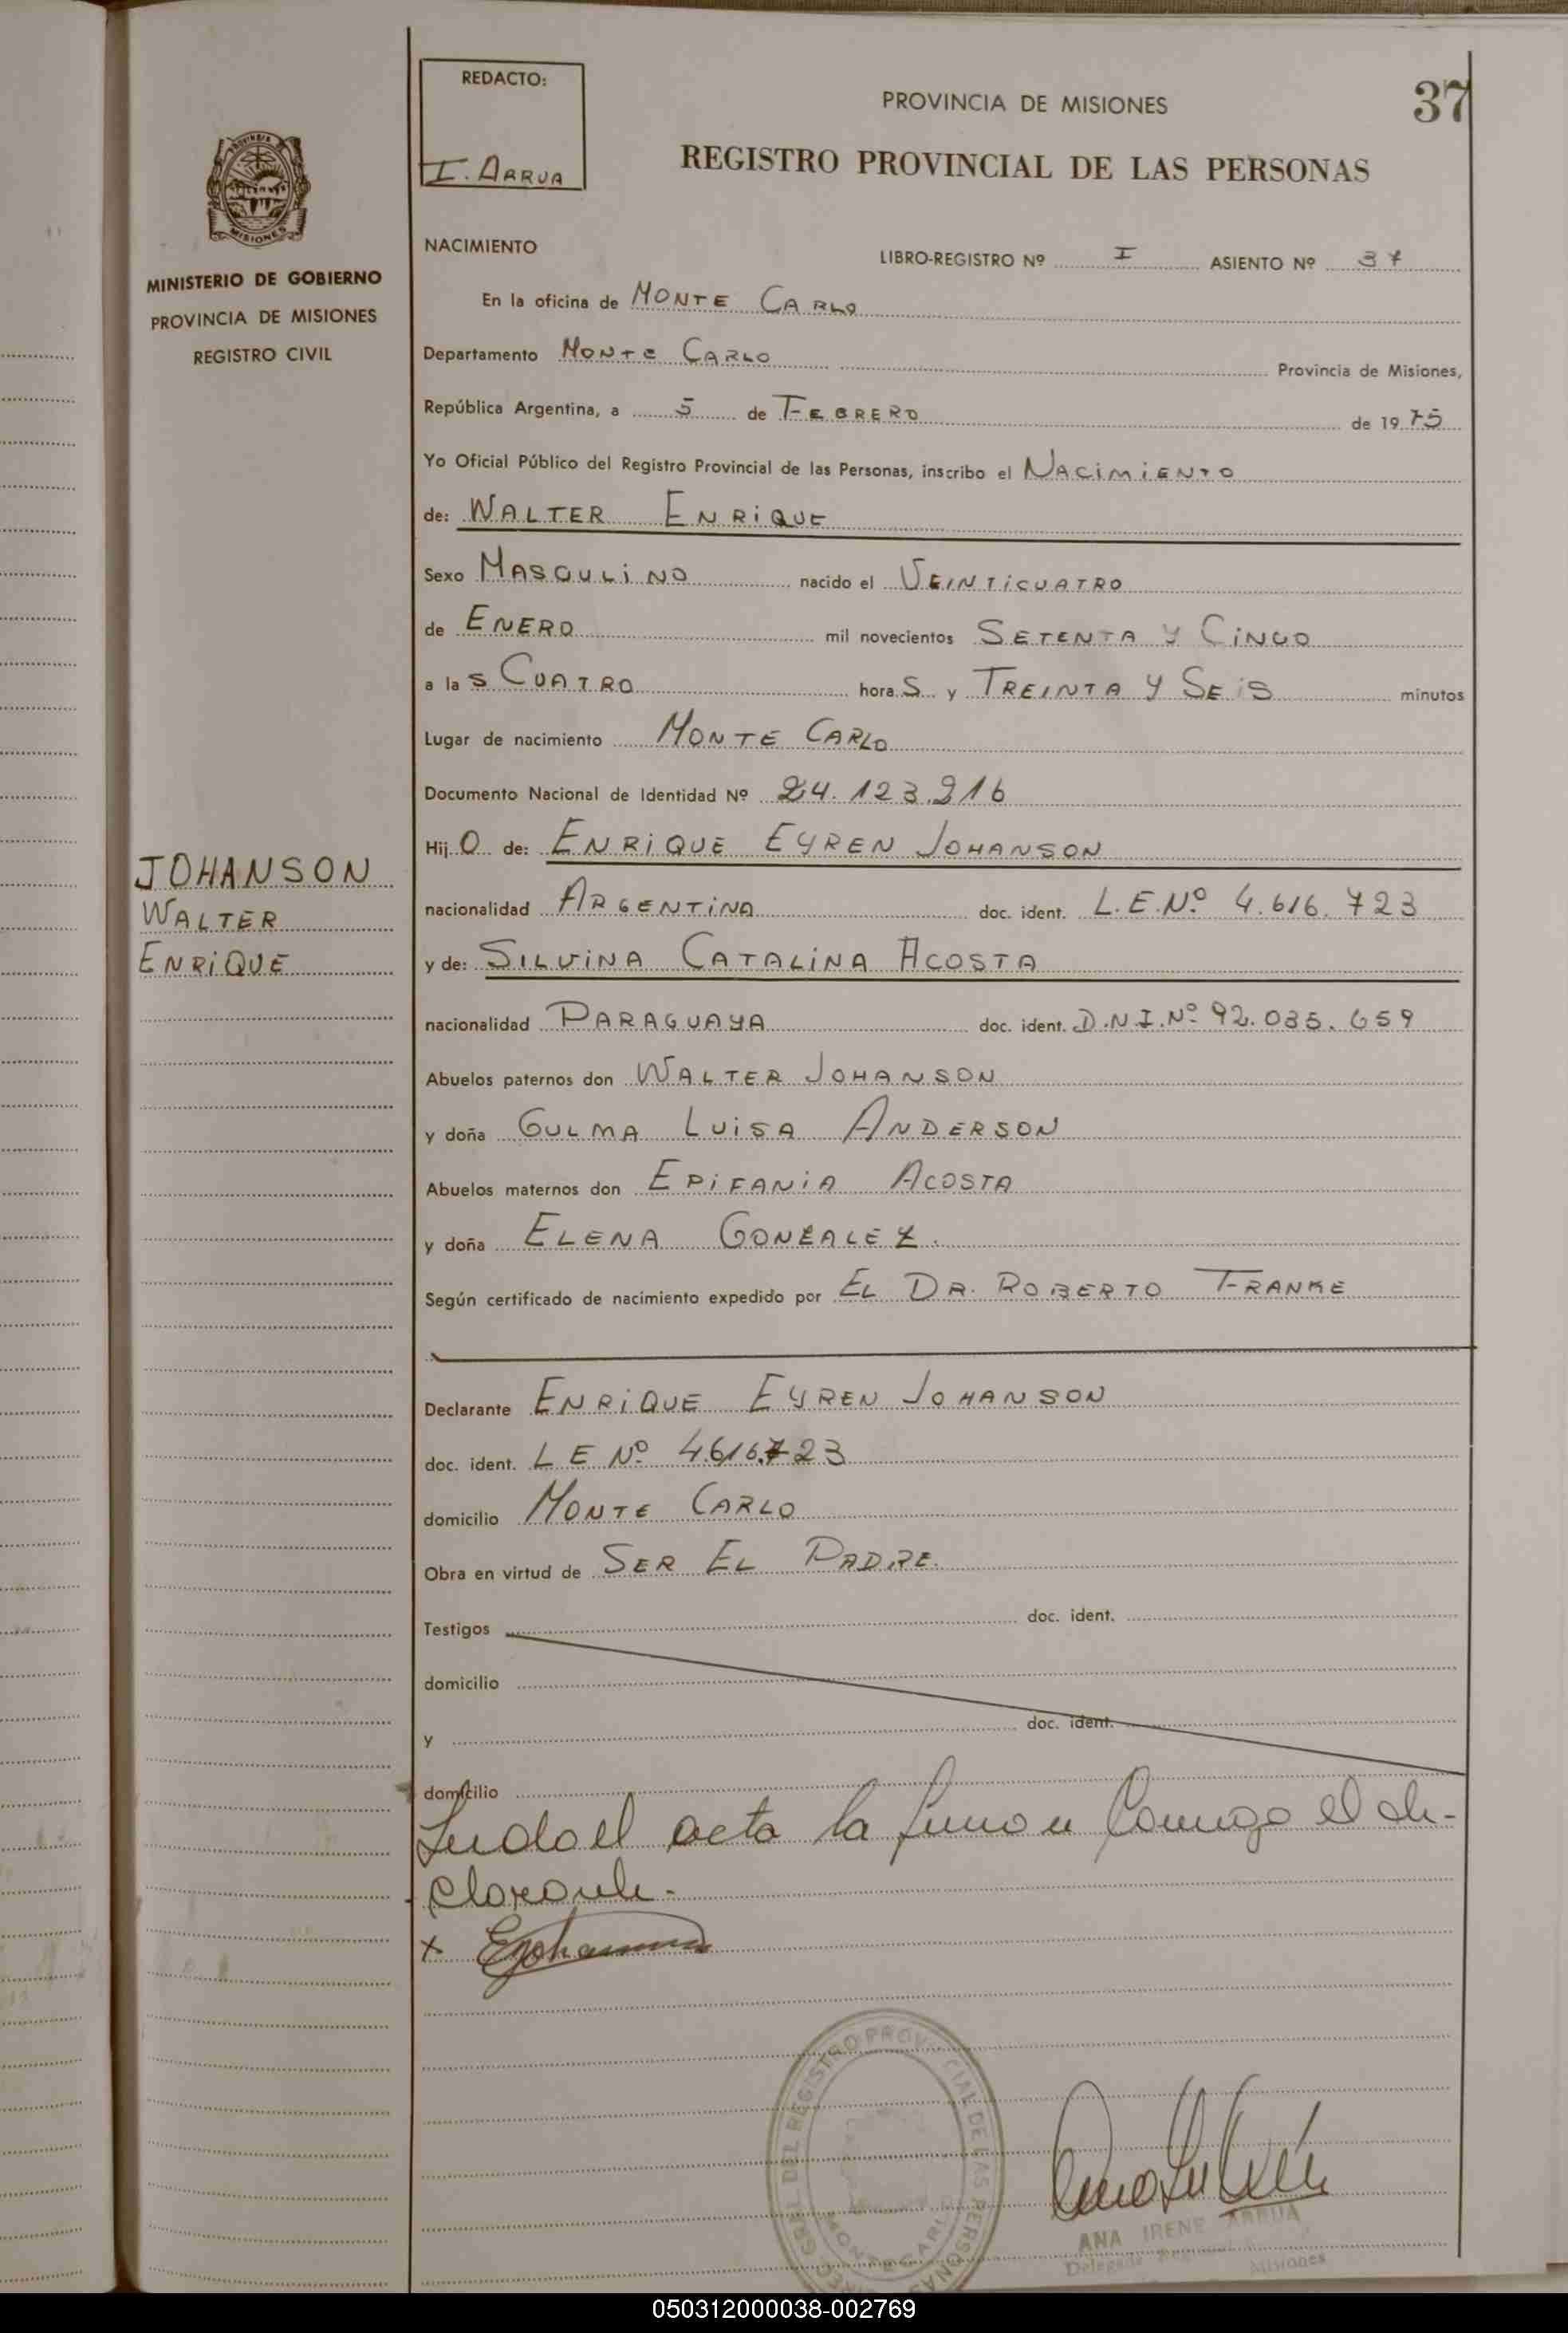 REDACTO:
I. ARRUA
PROVINCIA DE MISIONES
37
REGISTRO PROVINCIAL DE LAS PERSONAS
PROVINCIA
MISIONES
MINISTERIO DE GOBIERNO
PROVINCIA DE MISIONES
REGISTRO CIVIL
NACIMIENTO
LIBRO-REGISTRO Nº I ASIENTO Nº 37
En la oficina de MONTE CARLO
Departamento MONTE CARLO Provincia de Misiones,
República Argentina, a 5 de FEBRERO de 1975
Yo Oficial Público del Registro Provincial de las Personas, inscribo el NACIMIENTO
de: WALTER ENRIQUE
Sexo MASCULINO nacido el VEINTICUATRO
de ENERO mil novecientos SETENTA Y CINCO
a las CUATRO horas y TREINTA Y SEIS minutos
Lugar de nacimiento MONTE CARLO
Documento Nacional de Identidad Nº 24.123.216
Hijo de: ENRIQUE EYREN JOHANSON
JOHANSON
WALTER
ENRIQUE
nacionalidad ARGENTINA doc. ident. L.E.Nº 4.616.723
y de: SILVINA CATALINA ACOSTA
nacionalidad PARAGUAYA doc. ident. D.N.I.Nº 92.035.659
Abuelos paternos don WALTER JOHANSON
y doña GULMA LUISA ANDERSON
Abuelos maternos don EPIFANIA ACOSTA
y doña ELENA GONZALEZ.
Según certificado de nacimiento expedido por EL DR. ROBERTO FRANKE
Declarante ENRIQUE EYREN JOHANSON
doc. ident. L E Nº 4.616.723
domicilio MONTE CARLO
Obra en virtud de SER EL PADRE.
Testigos doc. ident.
domicilio
y doc. ident.
domicilio
Leido el acta la firmo conmigo el de-
clarante.-
x EJohanson
REGISTRO PROVINCIAL DE LAS PERSONAS
ANA IRENE ARRUA
Misiones
050312000038-002769